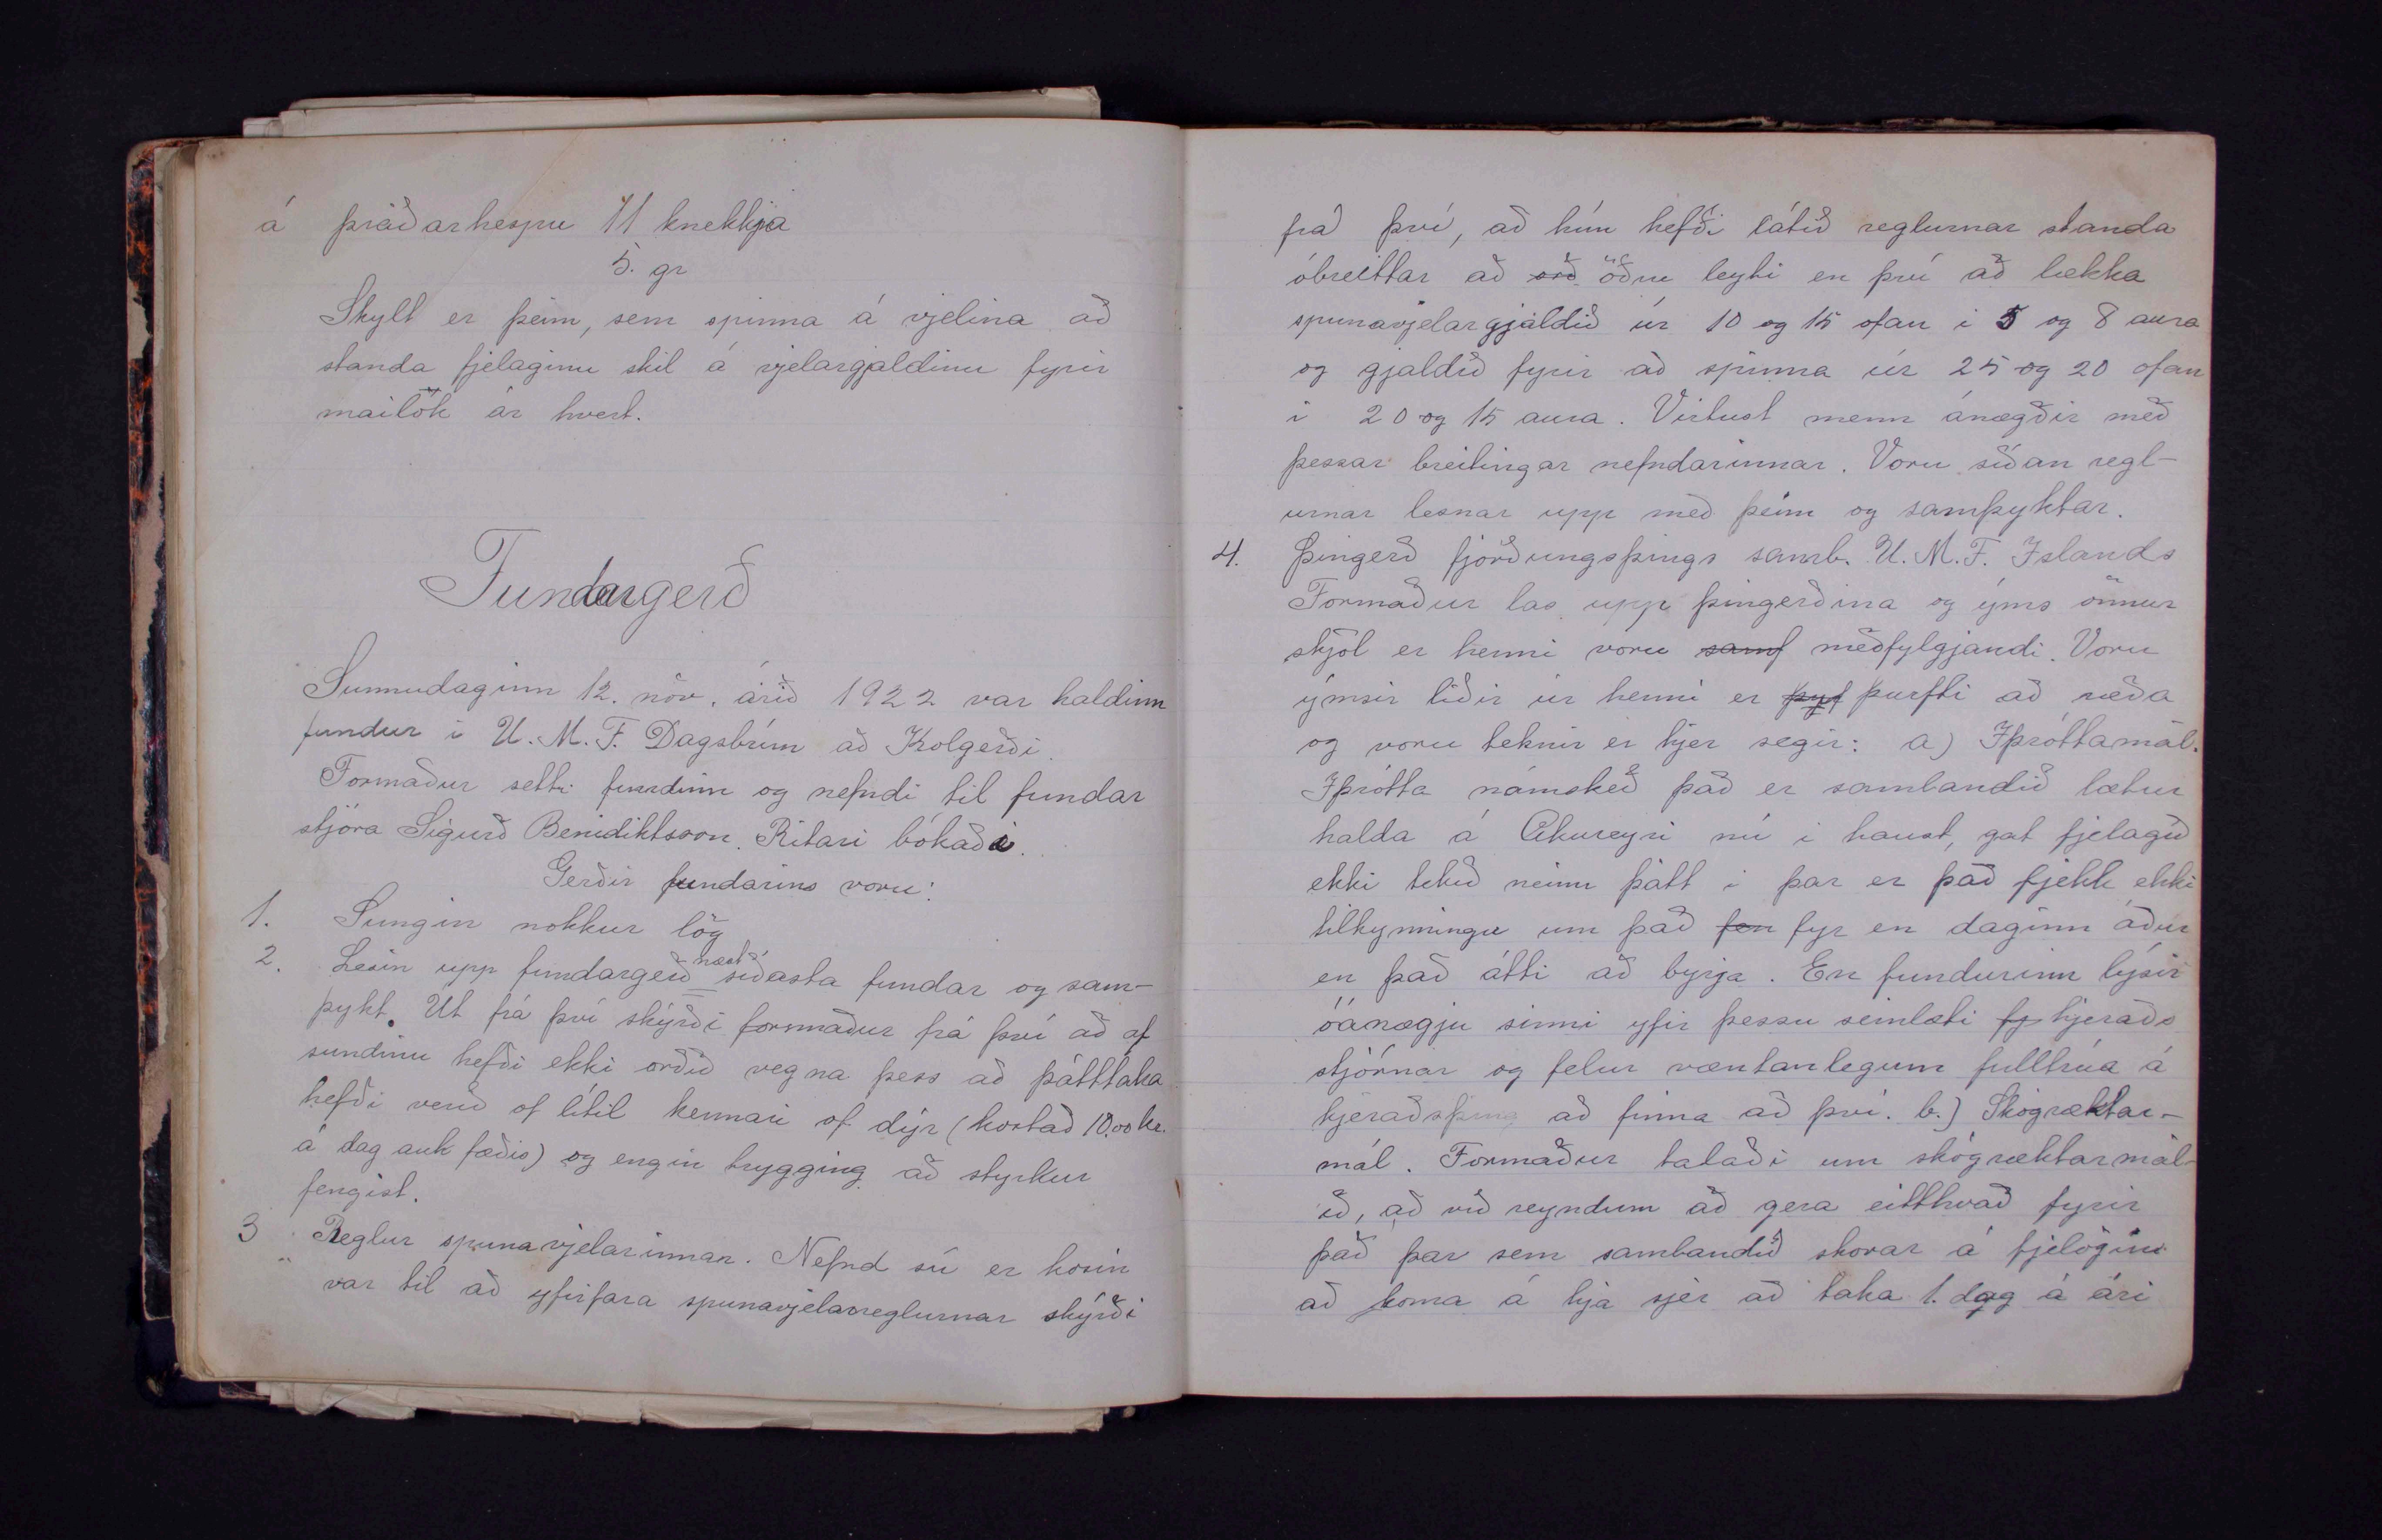 á þráðarhespu 11 knekkja
5. gr
Skylt er þeim, sem spinna á vjelina að
standa fjelaginu skil á vjelargjaldinu fyrir
maílok ár hvert.
Fundargerð
Sunnudaginn 12. nóv. árið 1922 var haldinn
fundur í U. M. F. Dagsbrún að Kolgerði.
Formaður setti fundinn og nefndi til fundar
stjóra Sigurð Benidiktsson. Ritari bókaði.
Gerðir fundarins voru:
1. Sungin nokkur lög
2. Lesin upp fundargerð næst síðasta fundar og sam-
þykt. Út frá því skýrði formaður frá því að af
sundinu hefði ekki orðið vegna þess að þátttaka
hefði verið of lítil kennari of dýr (kostað 10,00 kr.
á dag auk fæðis) og engin trygging að styrkur
fengist.
3 Reglur spunavjelarinnar. Nefnd sú er kosin
var til að yfirfara spunavjelareglurnar skýrði
frá því, að hún hefði látið reglurnar standa
óbreittar að orð öðru leyti en því að lækka
spunavjelargjaldið úr 10 og 15 ofan í 5 og 8 aura
og gjaldið fyrir að spinna úr 25 og 20 ofan
í 20 og 15 aura. Virtust menn ánægðir með
þessar breitingar nefndarinnar. Voru síðan regl-
urnar lesnar upp með þeim og samþyktar.
4. Þingerð fjórðungsþings samb. U. M. F. Islands
Formaður las upp þingerðina og ýms önnur
skjöl er henni voru samf meðfylgjandi. Voru
ýmsir liðir úr henni er þyf þurfti að ræða
og voru teknir er hjer segir: a) Iþróttamál.
Iþrótta námskeð það er sambandið lætur
halda á Akureyri nú í haust, gat fjelagið
ekki tekið neinn þátt í þar er það fjekk ekki
tilkynningu um það fen fyr en daginn áður
en það átti að byrja. En fundurinn lýsir
óánægju sinni yfir þessu seinlæti fj hjeraðs
stjórnar og felur væntanlegum fulltrúa á
hjeraðsþing að finna að því. b.) Skógræktar-
mál. Formaður talaði um skógræktarmál-
ið, að við reyndum að gera eitthvað fyrir
það þar sem sambandið skorar á fjelögin
að koma á hjá sjer að taka 1. dag á ári